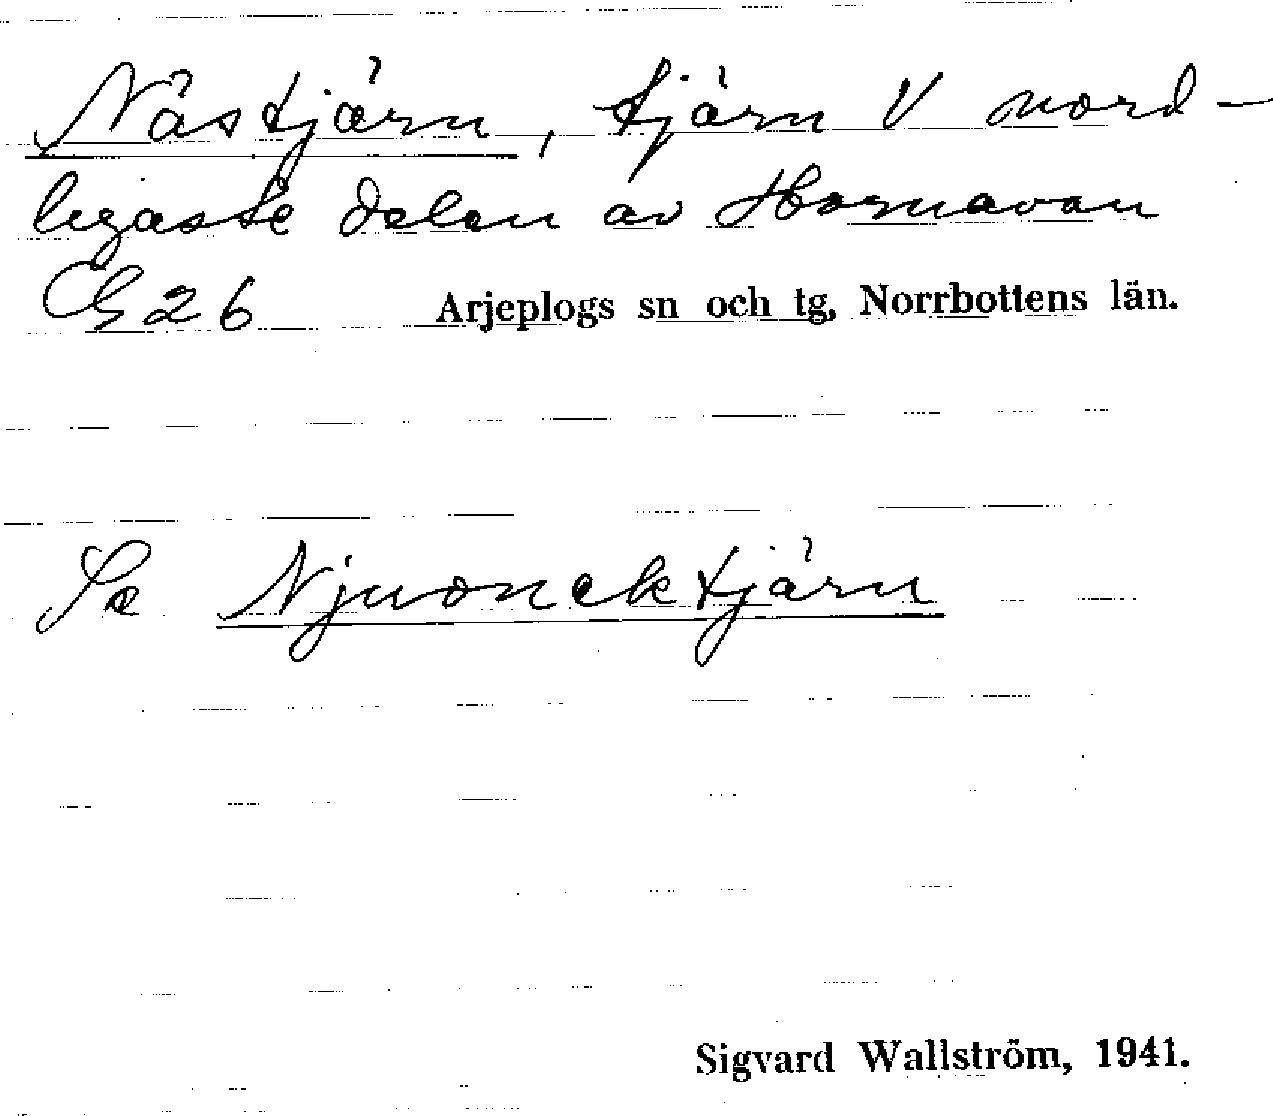 Nästjärn, tjärn V nord-
ligaste delen av Hornavan
G26 Arjeplogs sn och tg, Norrbottens län.
Se Njuonektjärn
Sigvard Wallström, 1941.